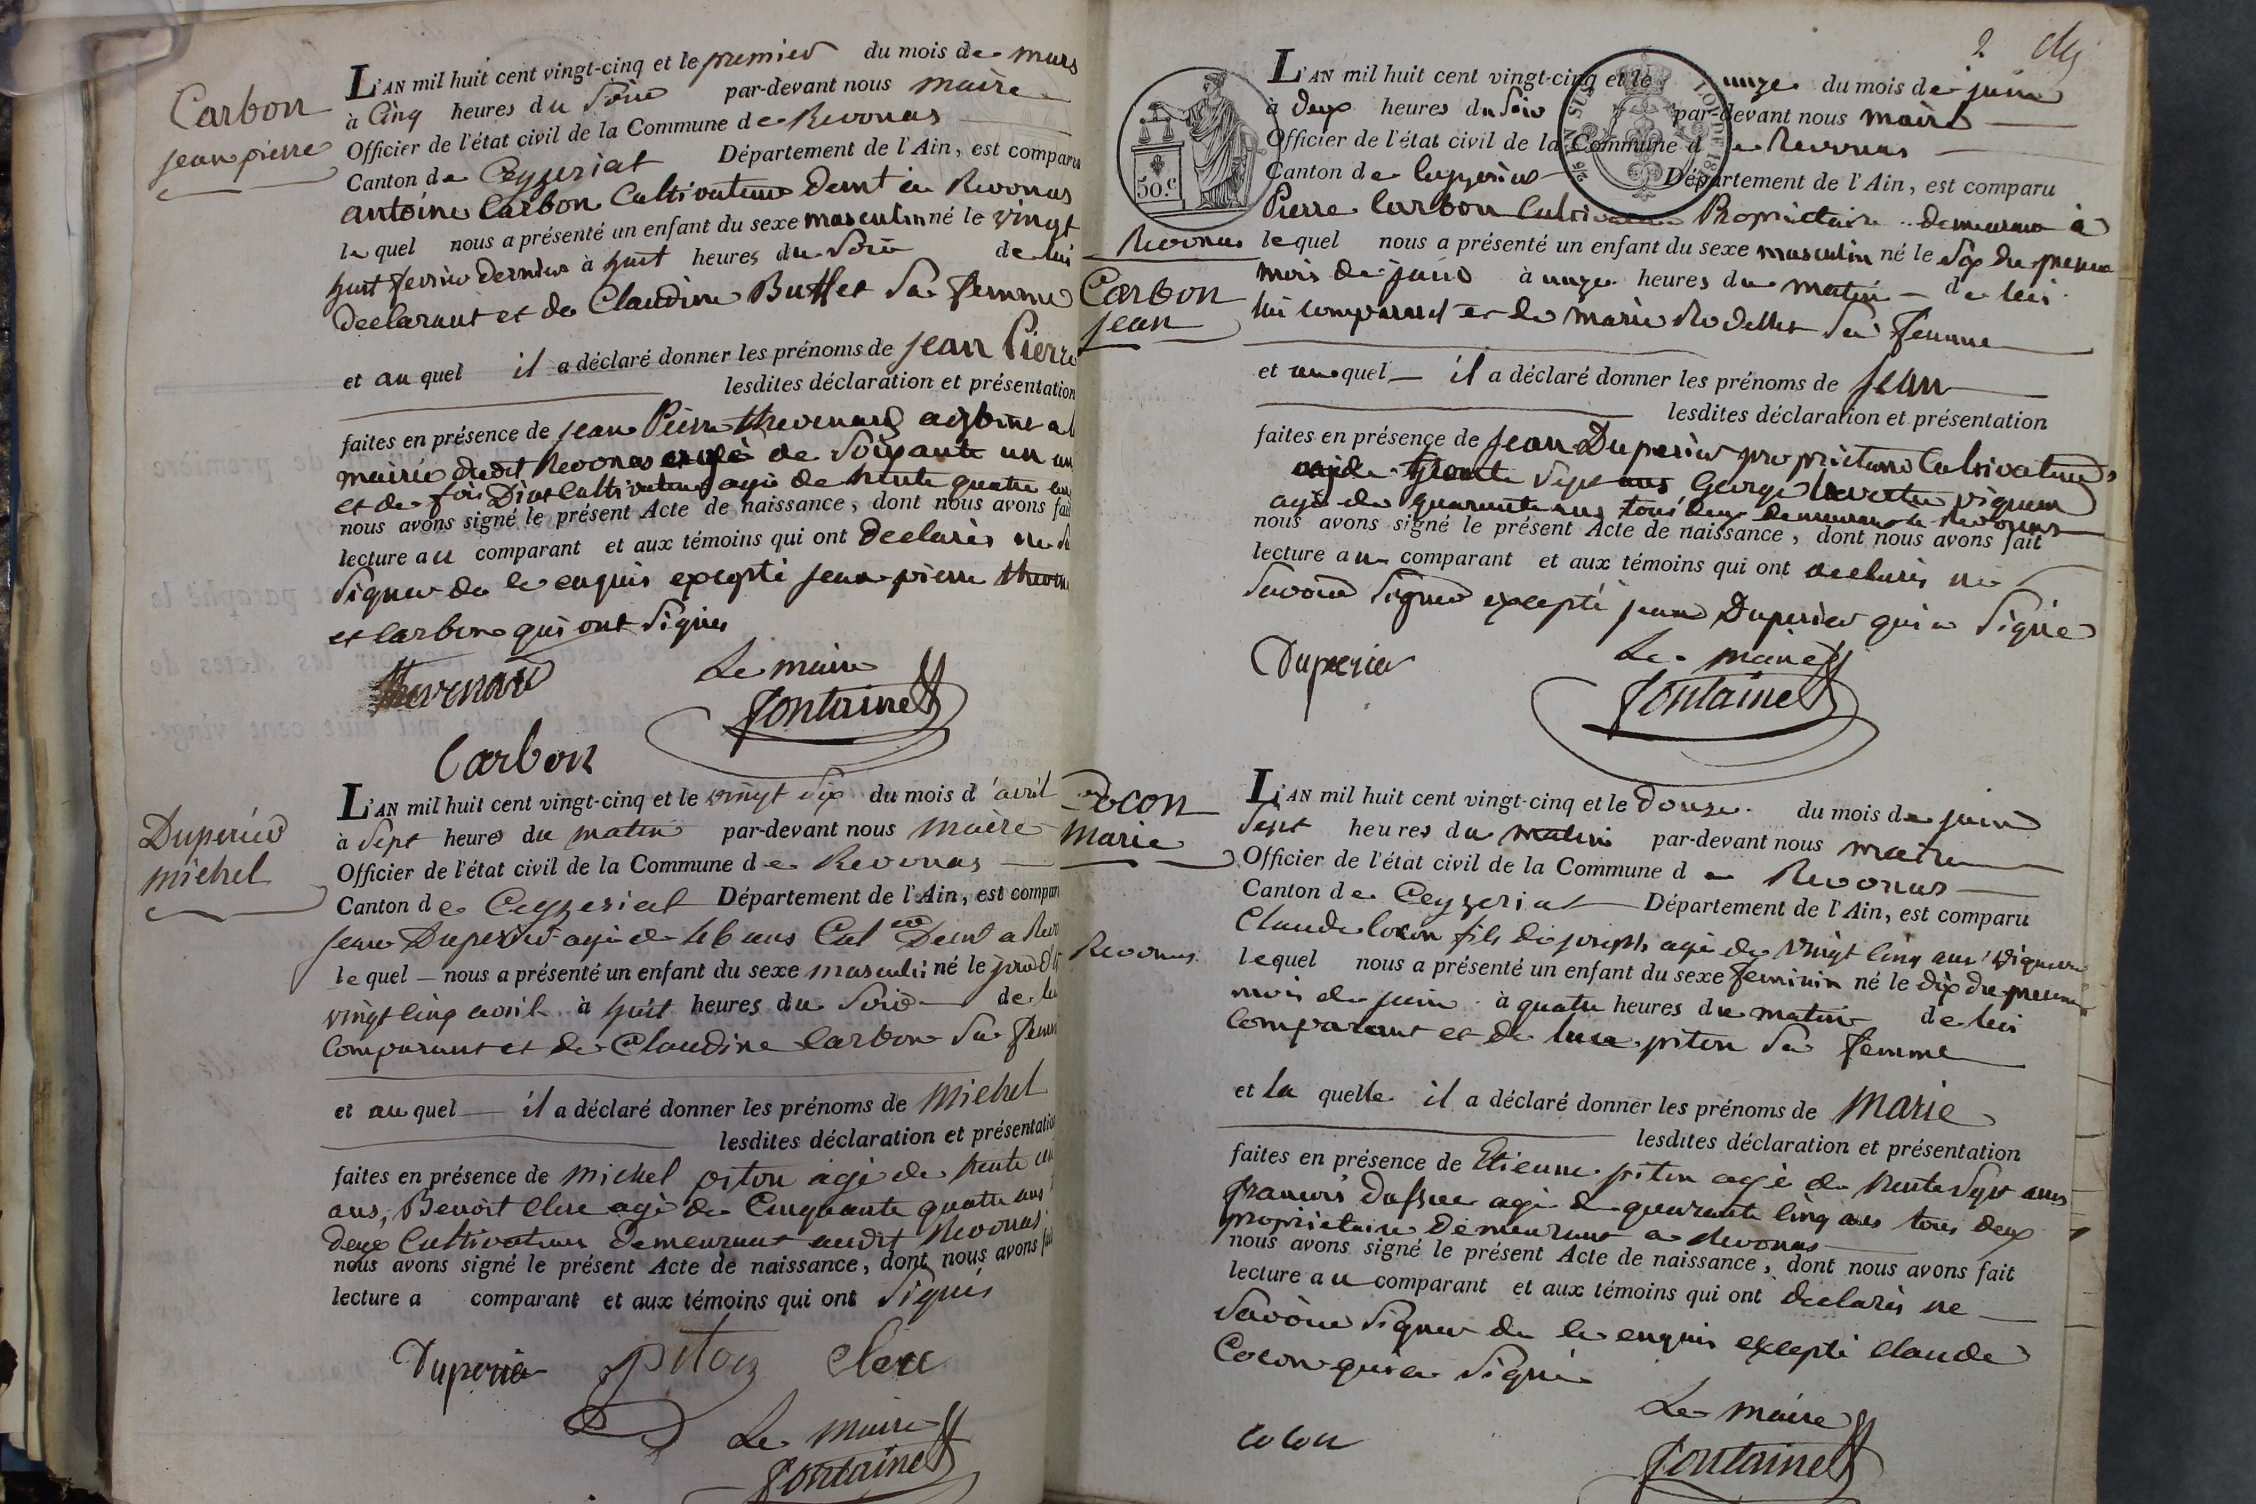 Carbon
jean pierre
L'AN mil huit cent vingt-cinq et le premier du mois de mars
à Cinq heures du Soir par-devant nous maire
Officier de l'état civil de la Commune de Revonas
Canton de Ceyzeriat Département de l'Ain, est comparu
antoine Carbon Cultivateur demt à Revonas
le quel nous a présenté un enfant du sexe masculin né le vingt
huit fevrier dernier à huit heures du Soir de lui
declarant et de Claudine Buffet Sa femme
et au quel il a déclaré donner les prénoms de jean Pierre
lesdites déclaration et présentation
faites en présence de jean Pierre thevenard adjoint a l
mairie dudit Revonas agé de Soixante un an
et de Cultivateur agé de trente quatre ans
nous avons signé le présent Acte de naissance, dont nous avons fait
lecture au comparant et aux témoins qui ont declarés ne S
Signer de ce enquis excepté jean pierre theven
et Carbon qui ont Signés
thevenard Le maire
Fontaine
Carbon
Duperier
michel
L'AN mil huit cent vingt-cinq et le vingt Six du mois d'avril
à Sept heures du matin par-devant nous maire
Officier de l'état civil de la Commune de Revonas
Canton de Ceyzeriat Département de l'Ain, est comparu
jean Duperier agé de 46 ans Cul eur Demt a Revo
le quel nous a présenté un enfant du sexe masculin né le jour d'h
vingt Cinq avril à huit heures du Soir de lui
Comparant et de Claudine Carbon Sa femme
et au quel il a déclaré donner les prénoms de Michel
lesdites déclaration et présentation
faites en présence de michel piton agé de trente
ans, Benoit Clerc agé de Cinquante quatre ans
deux Cultivateurs demeurant audit Revonas
nous avons signé le présent Acte de naissance, dont nous avons fait
lecture a comparant et aux témoins qui ont Signés
Duperier piton Clerc
Le Maire
Fontaine
2
L'AN mil huit cent vingt-cinq et le unze du mois de juin
à deux heures du Soir par-devant nous maire
Officier de l'état civil de la Commune de Revonas
Canton de Ceyzeriat Département de l'Ain, est comparu
50.c
Pierre Carbon Cultivateur Propriétaire demeurant à
Revonas le quel nous a présenté un enfant du sexe masculin né le Six du present
mois de juin à unze heures du matin de lui
Carbon
jean
lui comparant et de marie Rodellet Sa femme
et au quel il a déclaré donner les prénoms de jean
lesdites déclaration et présentation
faites en présence de jean Duperier propriétaire Cultivateur
agé de trente Sept ans George vigneron
agé de quarante ans tous deux demeurant a Revonas
nous avons signé le présent Acte de naissance, dont nous avons fait
lecture au comparant et aux témoins qui ont declarés ne
Savoir Signer excepté jean Duperier qui a Signé
Duperier Le maire
Fontaine
Cocon
Marie
L'AN mil huit cent vingt-cinq et le douze du mois de juin
Sept heures du matin par-devant nous maire
Officier de l'état civil de la Commune de Revonas
Canton de Ceyzeriat Département de l'Ain, est comparu
Claude Cocon fils de joseph agé de vingt Cinq ans vigneron
Revonas
lequel nous a présenté un enfant du sexe feminin né le dix du present
mois de juin à quatre heures du matin de lui
Comparant et de piton Sa femme
et la quelle il a déclaré donner les prénoms de Marie
lesdites déclaration et présentation
faites en présence de Etienne piton agé de trente Sept ans
francois agé de quarante Cinq ans tous deux
propriétaire demeurant a Revonas
nous avons signé le présent Acte de naissance, dont nous avons fait
lecture au comparant et aux témoins qui ont declarés ne
Savoir Signer de ce enquis excepté Claude
Cocon qui a Signé
Le Maire
Cocon Fontaine